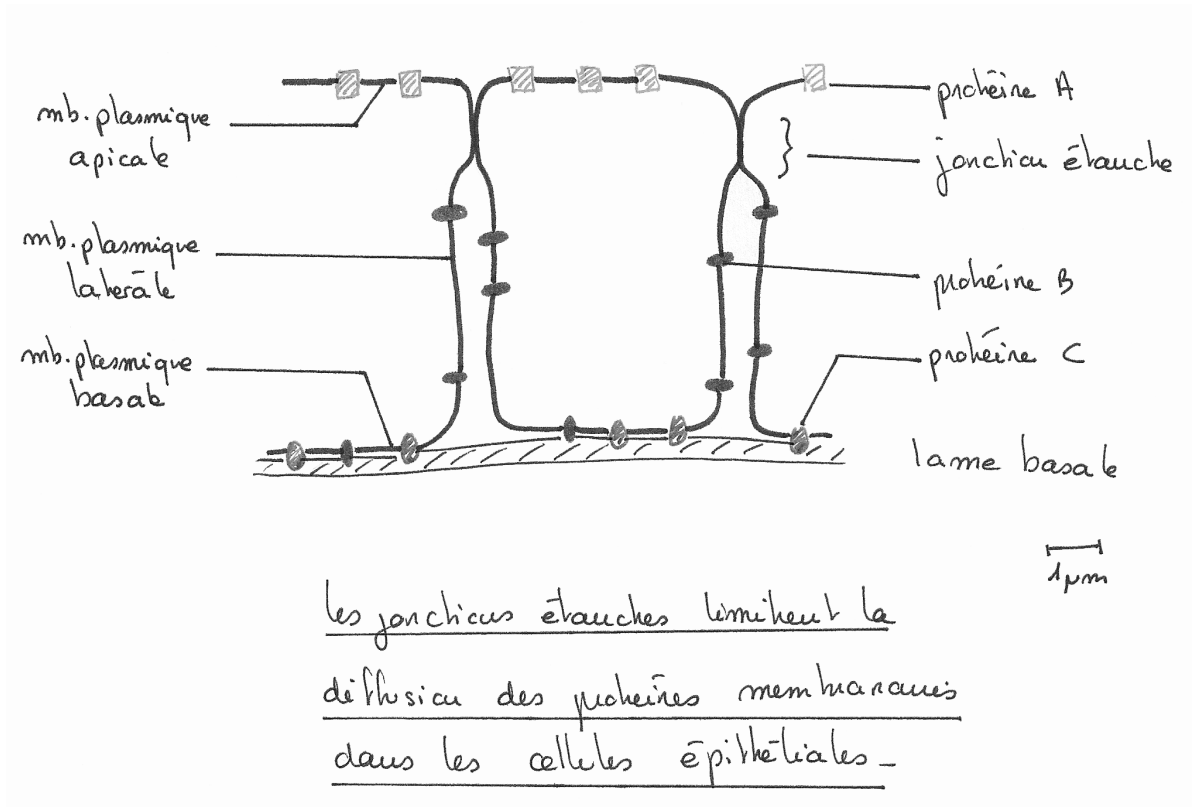 mb. plasmique
apicale
mb. plasmique
latérale
mb. plasmique
basale
protéine A
jonction étanche
protéine B
protéine C
lame basale
1 µm
les jonctions étanches limitent la
diffusion des protéines membranaires
dans les cellules épithéliales_